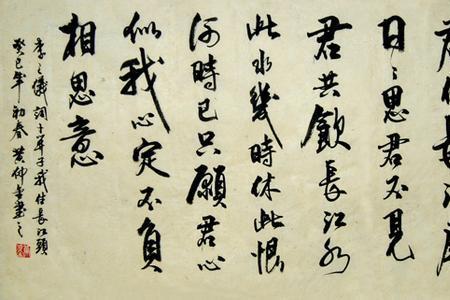 住長江
日々思君不見
君共飲長江水
此水幾時休此恨
何時已只願君心
似我心定不負
相思意
李之儀詞卜算子我住長江頭
癸巳年初春黄仲書之